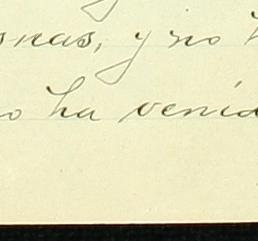 snas, y no h
o ha venid